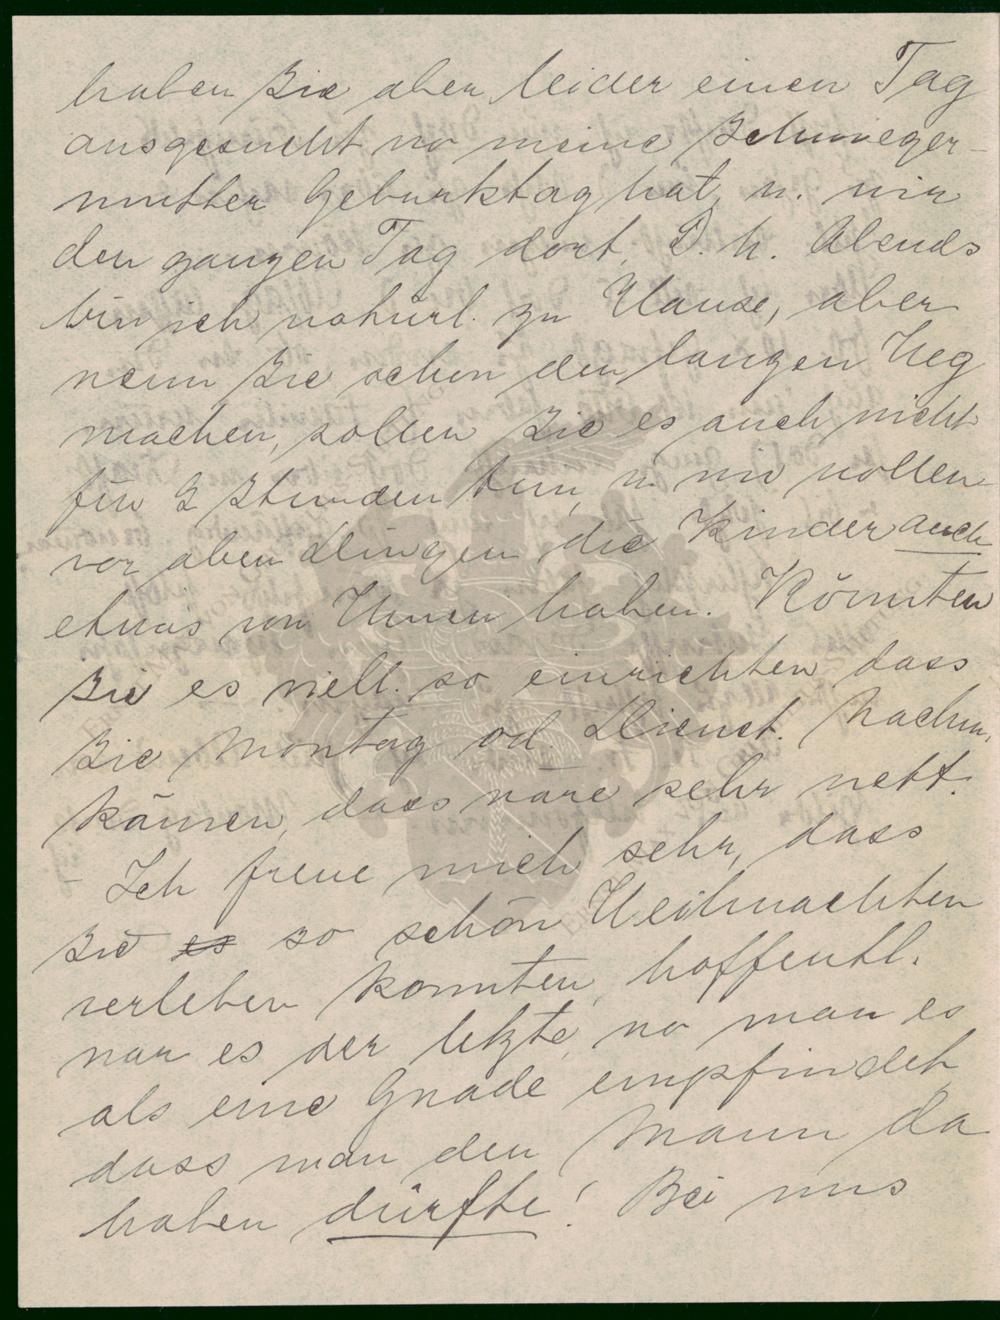 haben Sie aber leider einen Tag
ausgesucht wo meine Schwieger-
mutter Geburtstag hat, u. wir
den ganzen Tag dort. D. h. Abends
bin ich natürl. zu Hause, aber
wenn Sie schon den langen Weg
machen, sollen Sie es auch nicht
für 2 Stunden tun, u. wir wollen
vor allen Dingen die Kinder auch
etwas von Ihnen haben. Könnten
Sie es viell. so einrichten dass
Sie Montag od. Dienst. Nachm.
kämen, dass wäre sehr nett.
- Ich freue mich sehr, dass
Sie es so schön Weihnachten
verleben konnten, hoffentl.
war es der letzte, wo man es
als eine Gnade empfindet
dass man den Mann da
haben dürfte! Bei uns